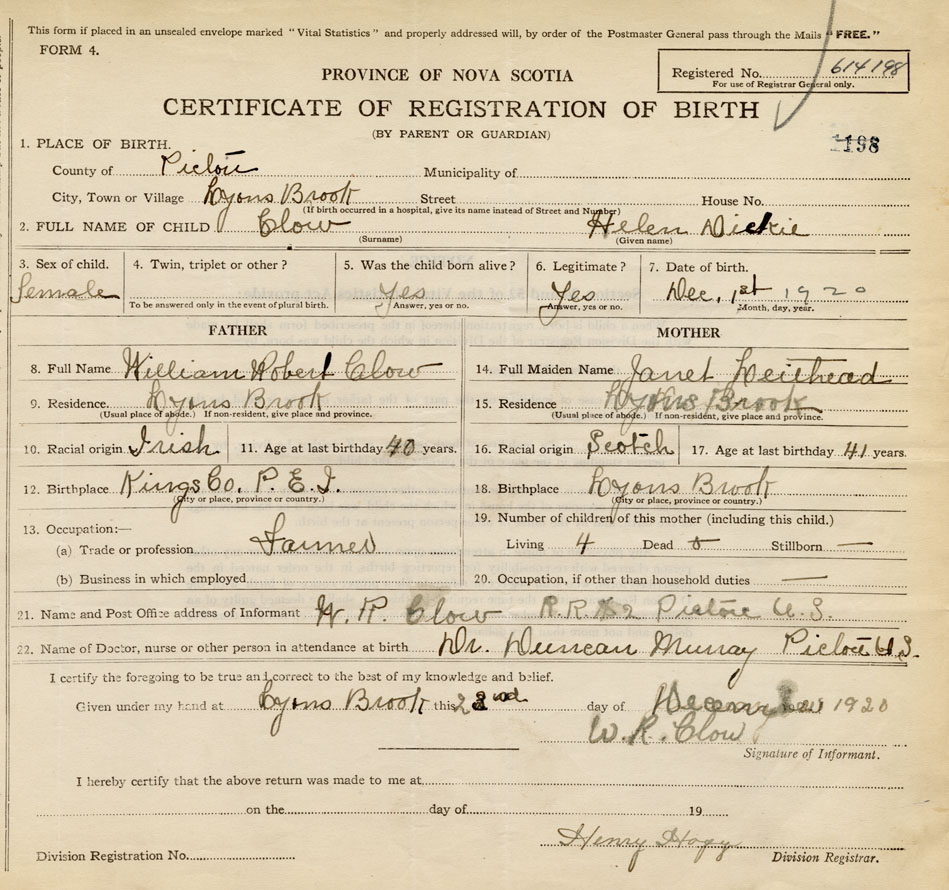 This form if placed in an unsealed envelope marked "Vital Statistics" and properly addressed will, by order of the Postmaster General pass through the Mails "FREE."
FORM 4.
PROVINCE OF NOVA SCOTIA
Registered No. 614198
For use of Registrar General only.
CERTIFICATE OF REGISTRATION OF BIRTH
(BY PARENT OR GUARDIAN)
1198
1. PLACE OF BIRTH.
County of Pictou Municipality of
City, Town or Village Lyons Brook Street House No.
(If birth occurred in a hospital, give its name instead of Street and Number)
2. FULL NAME OF CHILD Clow Helen Dickie
(Surname) (Given name)
3. Sex of child. 4. Twin, triplet or other? 5. Was the child born alive? 6. Legitimate? 7. Date of birth.
Female Yes Yes Dec, 1st 1920
To be answered only in the event of plural birth. Answer, yes or no. Answer, yes or no. Month, day, year.
FATHER MOTHER
8. Full Name William Robert Clow 14. Full Maiden Name Janet Leithead
9. Residence Lyons Brook 15. Residence Lyons Brook
(Usual place of abode.) If non-resident, give place and province. (Usual place of abode.) If non-resident, give place and province.
10. Racial origin Irish 11. Age at last birthday 40 years. 16. Racial origin Scotch 17. Age at last birthday 41 years.
12. Birthplace Kings Co. P. E. I. 18. Birthplace Lyons Brook
(City or place, province or country.) (City or place, province or country.)
13. Occupation:— 19. Number of children of this mother (including this child.)
(a) Trade or profession Farmer Living 4 Dead 0 Stillborn —
(b) Business in which employed 20. Occupation, if other than household duties —
21. Name and Post Office address of Informant W. R. Clow R.R. #2 Pictou N.S.
22. Name of Doctor, nurse or other person in attendance at birth Dr. Duncan Murray Pictou N.S.
I certify the foregoing to be true and correct to the best of my knowledge and belief.
Given under my hand at Lyons Brook this 22nd day of December 1920
W. R. Clow
Signature of Informant.
I hereby certify that the above return was made to me at
on the day of 19
Henry Hogg
Division Registration No. Division Registrar.